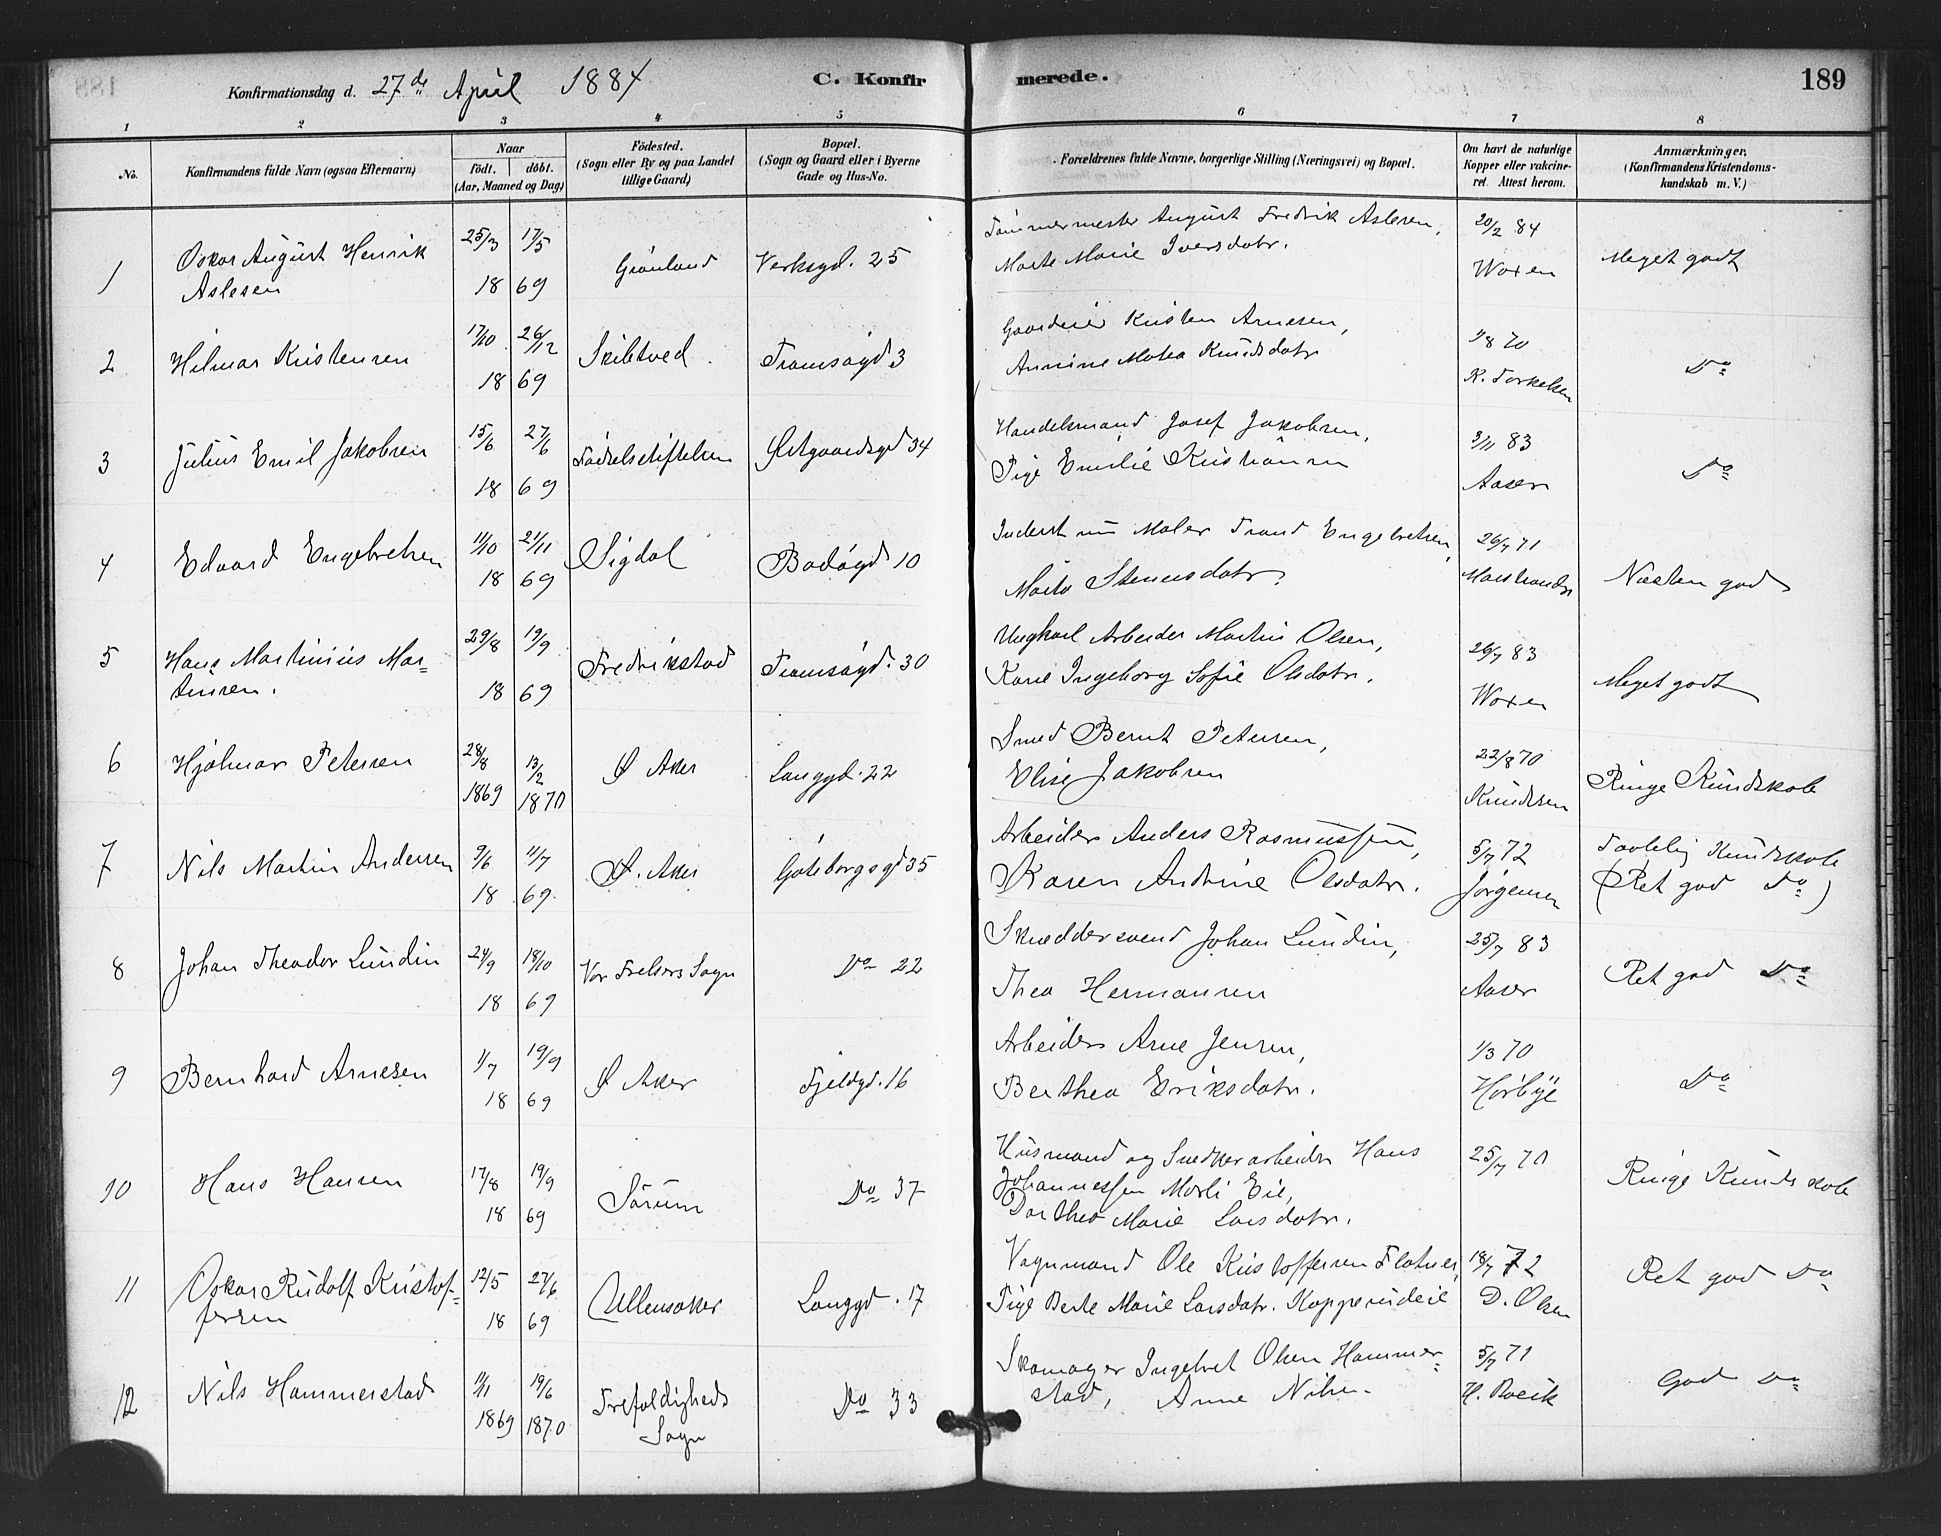 Konfirmationsdag d. 27de April 1884 C. Konfirmerede. 189
1 2 3 4 5 6 7 8
No. Konfirmandens fulde Navn (ogsaa Efternavn) Naar födt. döbt. (Aar, Maaned og Dag) Födested. (Sogn eller By og paa Landet tillige Gaard) Bopæl. (Sogn og Gaard eller i Byerne Gade og Hus-No. Forældrenes fulde Navne, borgerlige Stilling (Næringsvei) og Bopæl. Om havt de naturlige Kopper eller vakcineret. Attest herom. Anmærkninger, (Konfirmandens Kristendomskundskab m. V.)
1 Oskar August Henrik 25/3 17/5 Grønland Verksgd. 25 Tømmermester August Fredrik Aslesen, 20/2 84 Meget godt
Aslesen 18 69 Marte Marie Iversdatr. Woxen
2 Hilmar Kristensen 17/10 26/12 Skibtved Tromsøgd 3 Gaardeier Kristen Arnesen, 1/8 70 Do
18 69 Annine Mathea Knudsdatr K. Torkelsen
3 Julius Emil Jakobsen 15/6 27/6 Fødselsstiftelsen Østgaardsgd 34 Handelsmand Josef Jakobsen, 3/11 83 Do
18 69 Pige Emilie Kristiansen Aaser
4 Edvard Engebretsen 11/10 21/11 Sigdal Bodøgd 10 Inderst nu Maler Trond Engebretsen, 26/7 71 Næsten god
18 69 Marta Stenersdatr. Marstrander
5 Hans Martinius Mar= 29/8 19/9 Fredrikstad Tromsøgd. 30 Ungkarl Arbeider Martin Olsen, 26/7 83 Meget godt
tinsen. 18 69 Karie Ingeborg Sofie Olsdatr. Woxen
6 Hjalmar Petersen 28/8 13/2 Ø Aker Langgd. 22 Smed Bernt Petersen, 22/8 70 Ringe Kundskab
1869 1870 Elise Jakobsen Knudsen
7 Nils Martin Andersen 9/6 11/7 Ø. Aker Gøteborgsgd 35 Arbeider Anders Rasmussen, 5/7 72 Taalelig Kundskab
18 69 Karen Andrine Olsdatr. Jørgensen (Ret god Do)
8 Johan Theodor Lundin 24/9 18/10 Vor Frelsers Sogn Do 22 Skræddersvend Johan Lundin, 25/7 83 Ret god Do
18 69 Thea Hermansen Aaser
9 Bernhard Arnesen 1/7 19/9 Ø Aker Fjeldgd. 16 Arbeider Arne Jensen, 1/3 70 Do
18 69 Berthea Eriksdatr. Hørbye
10 Hans Hansen 17/8 19/9 Sørum Do 37 Husmand og Snedkerarbeider Hans 25/7 70 Ringe Kundskab
18 69 Johannessen Morli Eie,
Dorthea Marie Larsdatr.
11 Oskar Rudolf Kristof= 12/5 27/6 Ullensaker Langgd. 17 Vognmand Ole Kristoffersen Flatner, 18/7 72 Ret god Do
fersen 18 69 Pige Berte Marie Larsdatr. D. Olsen
12 Nils Hammerstad 11/11 19/6 Trefoldigheds Do 33 Skomager Ingebret Olsen Hammer= 5/7 71 God Do
1869 1870 Sogn stad, Anne Nilsn.